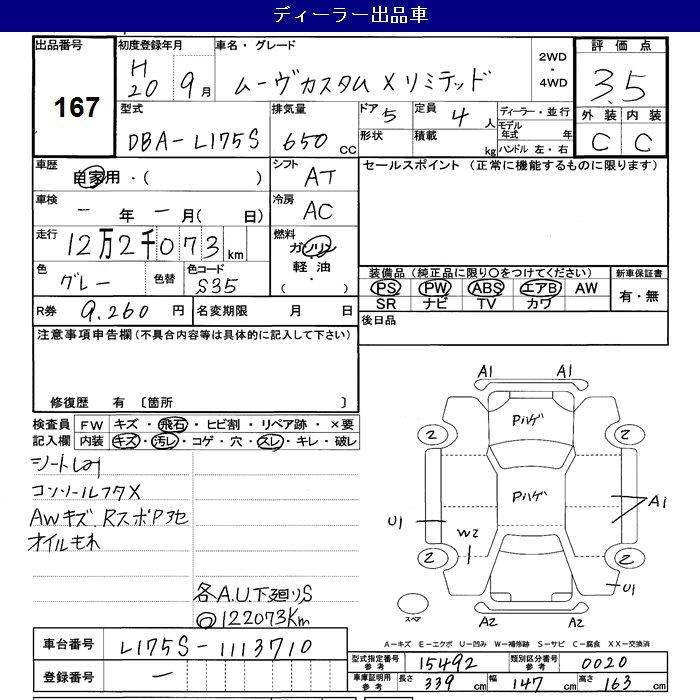 ディーラー出品車
出品番号
167
初度登録年月
H20 9月
車名・グレード
ムーヴカスタム X リミテッド
2WD・4WD
評価点
3.5
型式
DBA-L175S
排気量
650 CC
ドア 5
定員 4 人
形状
積載 kg
ディーラー・並行
モデル年式 年
ハンドル 左・右
外装 内装
C C
車歴
自家用・( )
シフト
AT
セールスポイント (正常に機能するものに限ります)
車検
ー 年 ー 月( 日)
冷房
AC
走行
12万2千073km
燃料
ガソリン・軽油・( )
色
グレー
色替
色コード
S35
装備品(純正品に限り○をつけてください)
PS PW ABS エアB AW
SR ナビ TV カワ
新車保証書
有・無
R券 9.260 円
名変期限 月 日
後日品
注意事項申告欄(不具合内容等は具体的に記入して下さい)
修復歴 有 〔箇所 〕
検査員記入欄
FW キズ・飛石・ヒビ割・リペア跡・×要
内装 キズ・汚レ・コゲ・穴・スレ・キレ・破レ
シートしみ
コンソールフタX
AWキズ.RスポPヲセ
オイルもれ
各A.U.下廻りS
◎122073Km
A1 A1
Pハゲ
2 2
Pハゲ
A1
U1
W2
2 2
U1
スペア
A2 A2
A-キズ E-エクボ U-凹み W-補修跡 S-サビ C-腐食 XX-交換済
車台番号
L175S-1113710
登録番号
ー
型式指定番号 参考
15492
類別区分番号 参考
0020
車庫証明用 参考
長さ 339 cm 幅 147 cm 高さ 163 cm